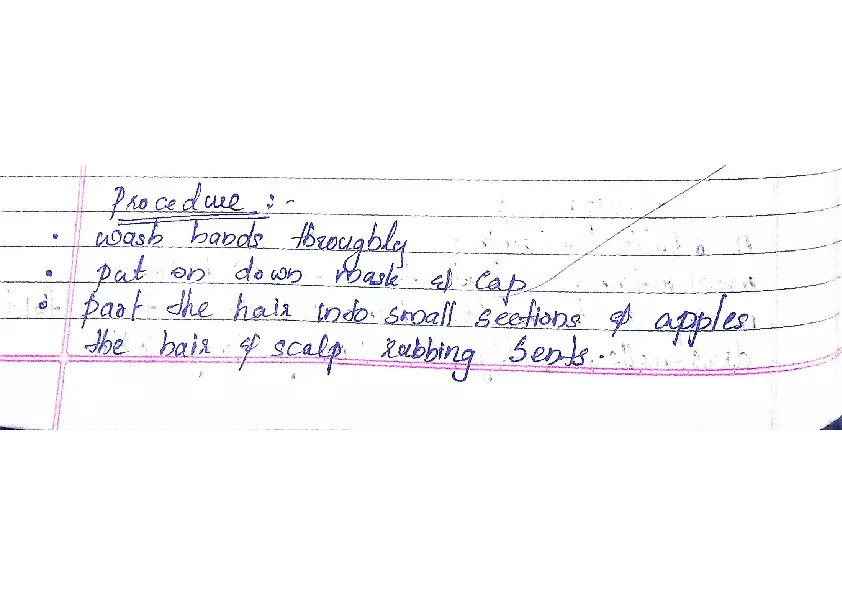 Procedure :-
• wash hands throughly
• put on down mask & cap
• part the hair into small sections & apples
the hair & scalp rubbing Sents.